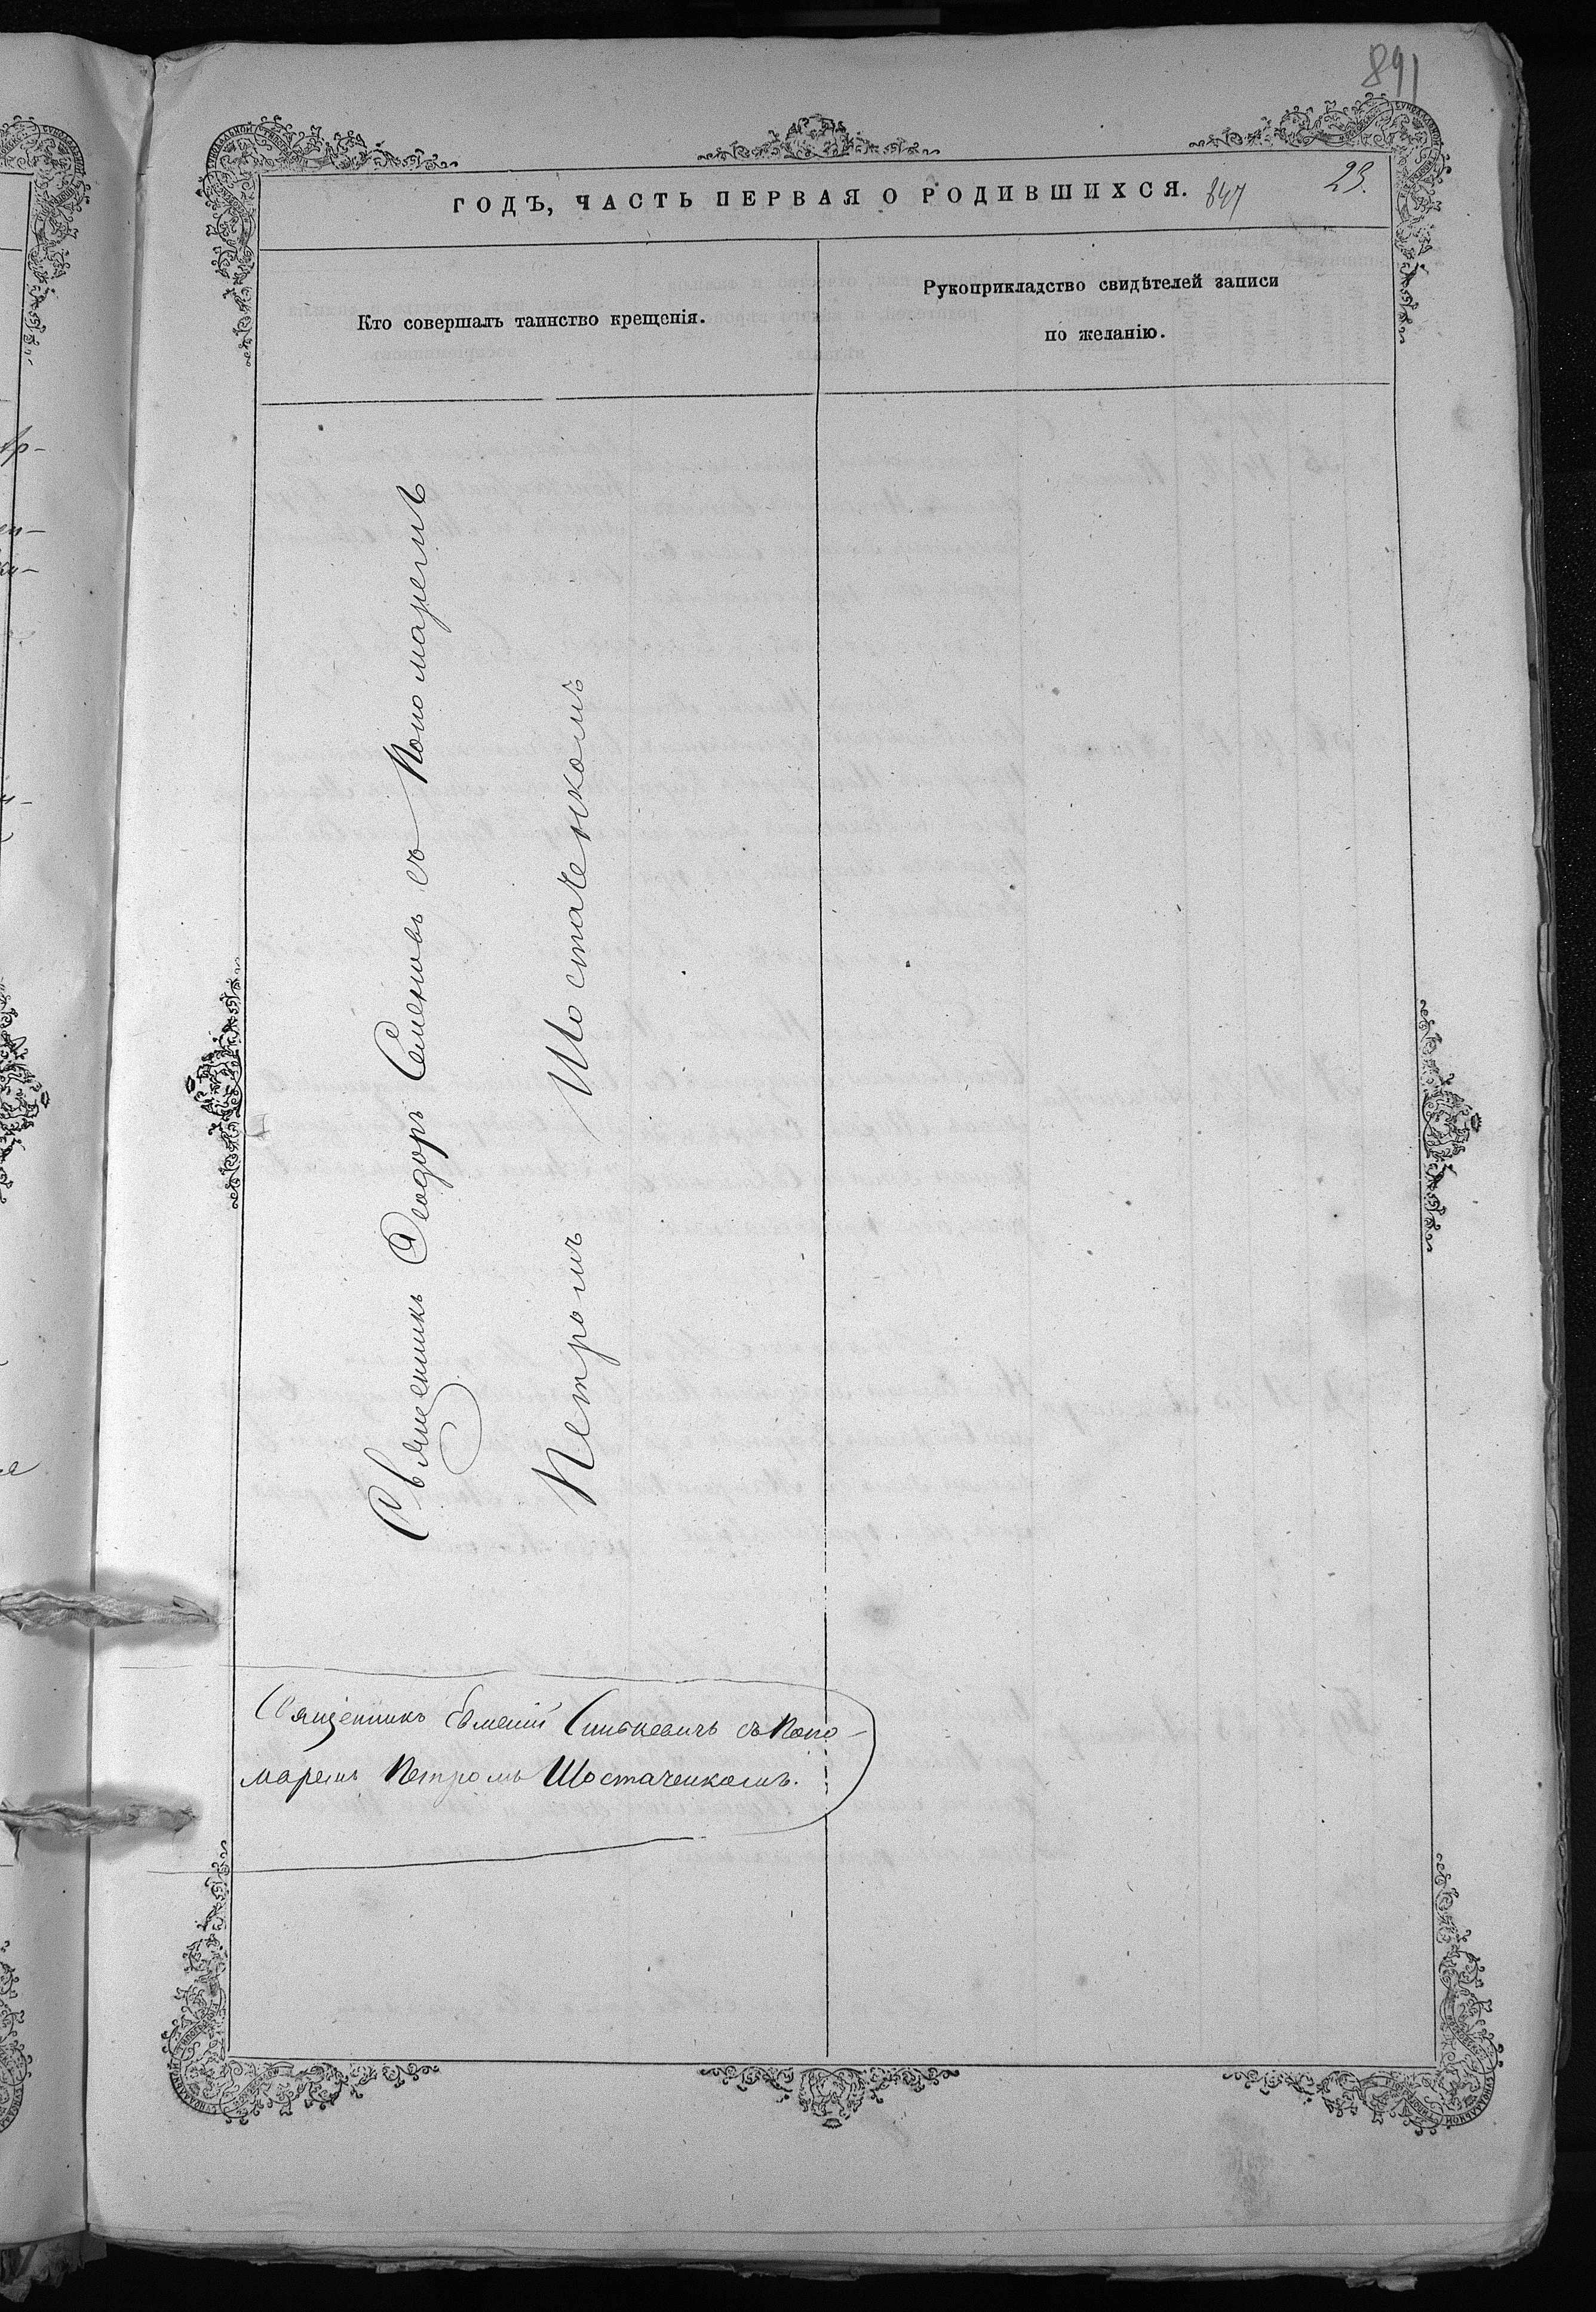 891
23.
ГОДЪ, ЧАСТЬ ПЕРВАЯ О РОДИВШИХСЯ. 847
Кто совершалъ таинство крещенія.
Рукоприкладство свидѣтелей записи
по желанію.
Священникъ Ѳеодоръ Семеновъ съ Пономаремъ
Петромъ Шостаченкомъ
Священникъ Евменій Синькевичъ съ Поно-
маремъ Петромъ Шостаченкомъ.